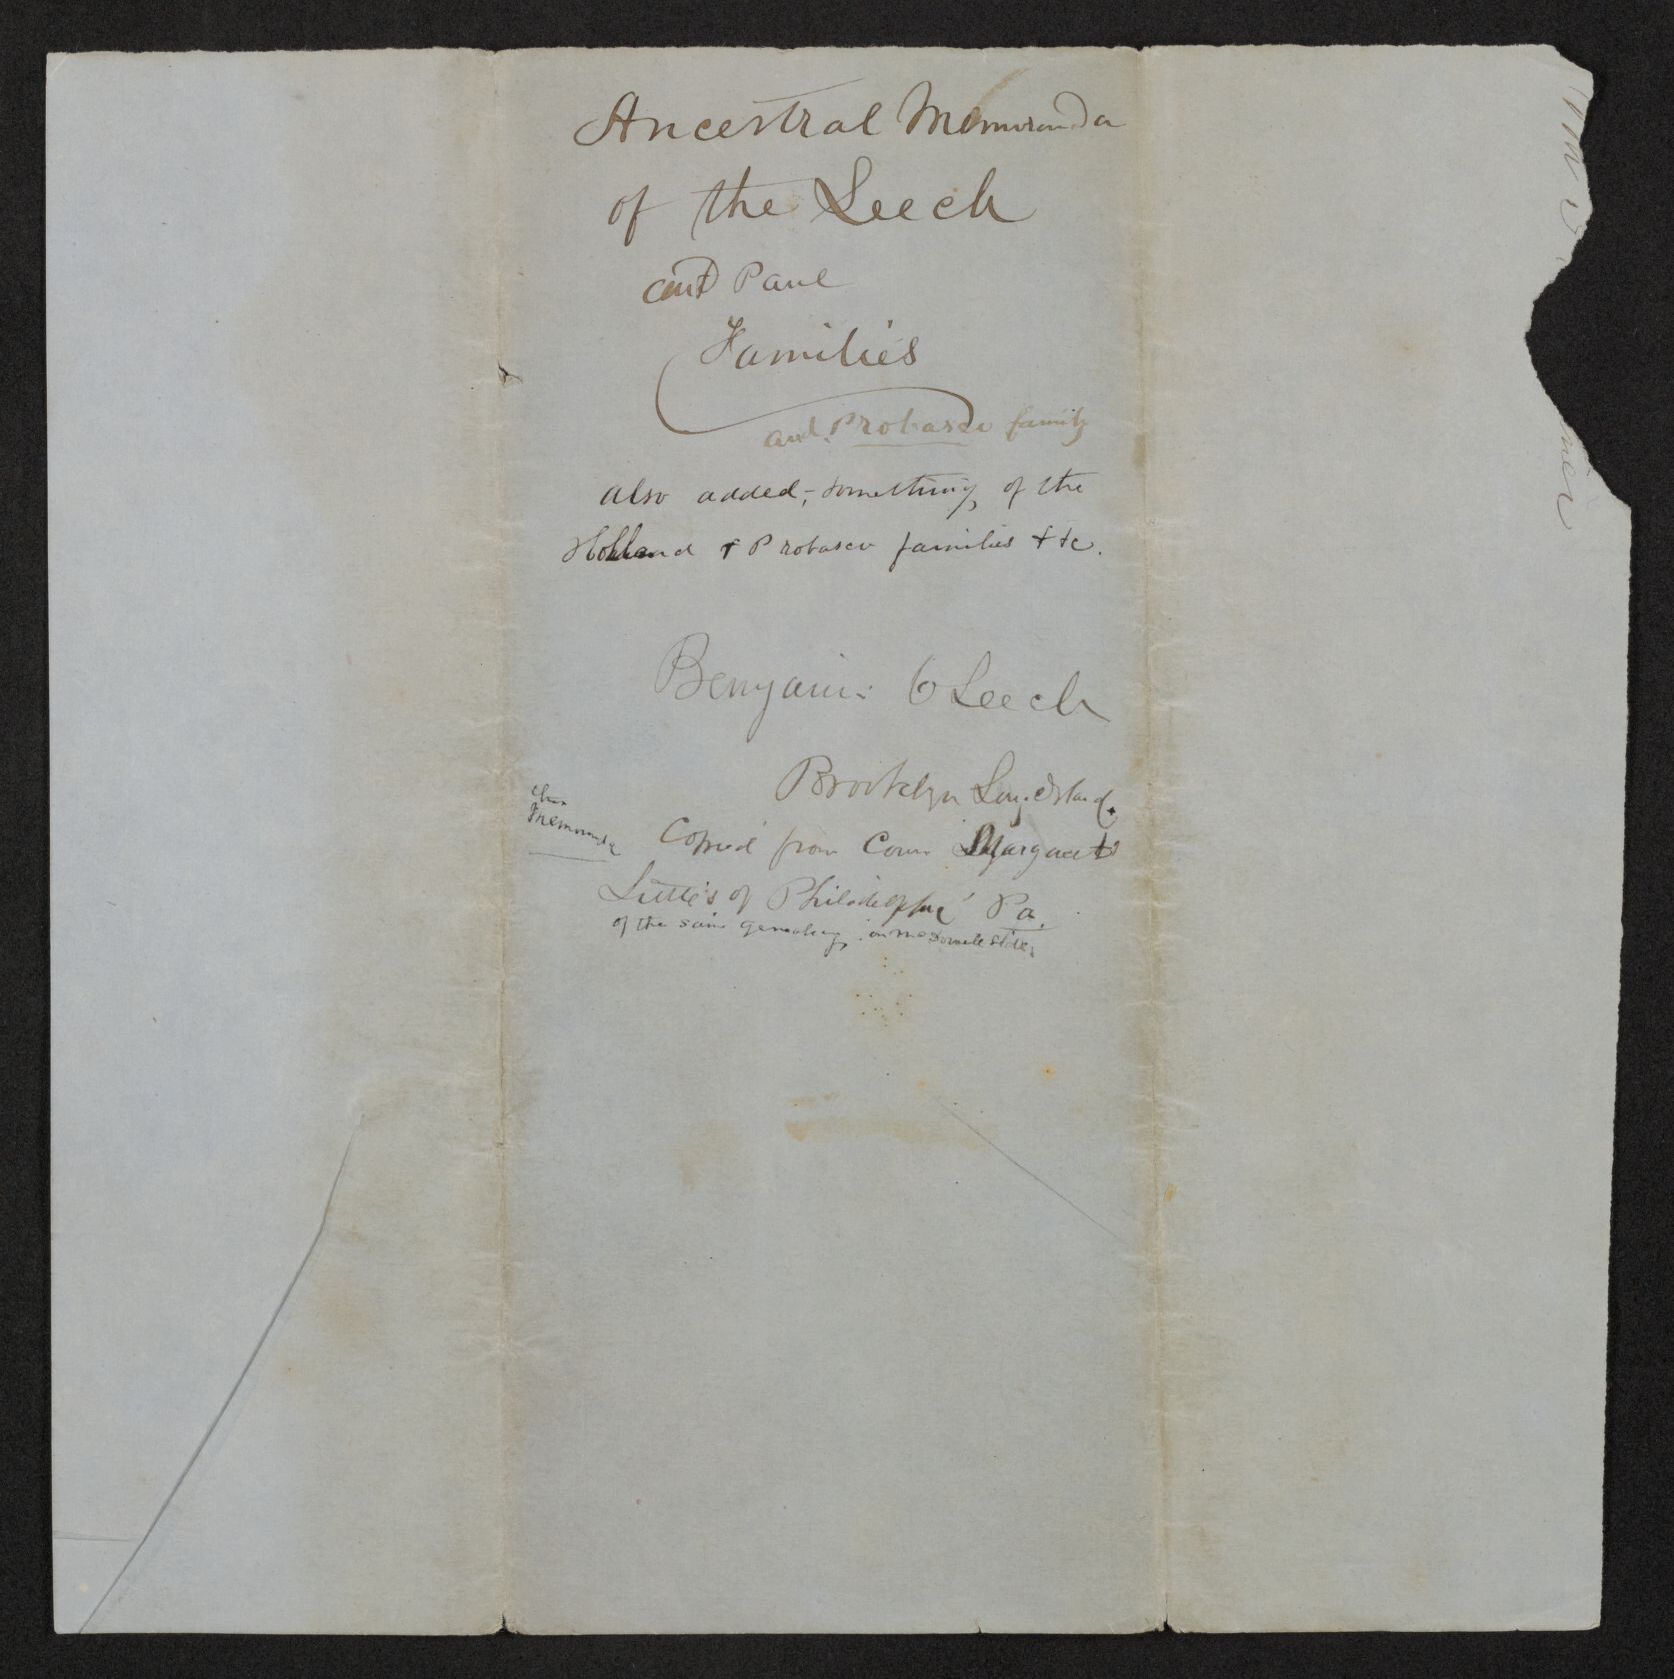 Ancestral Memoranda
of the Leech
and Paul
Families
and Probasco family
also added, something, of the
Holland & Probasco families & &c.
Benjamin Leech
Brooklyn Long Island.
Memoranda
Copied from Cousin Margaret
Little's of Philadelphia Pa.
of the same genealogy, in